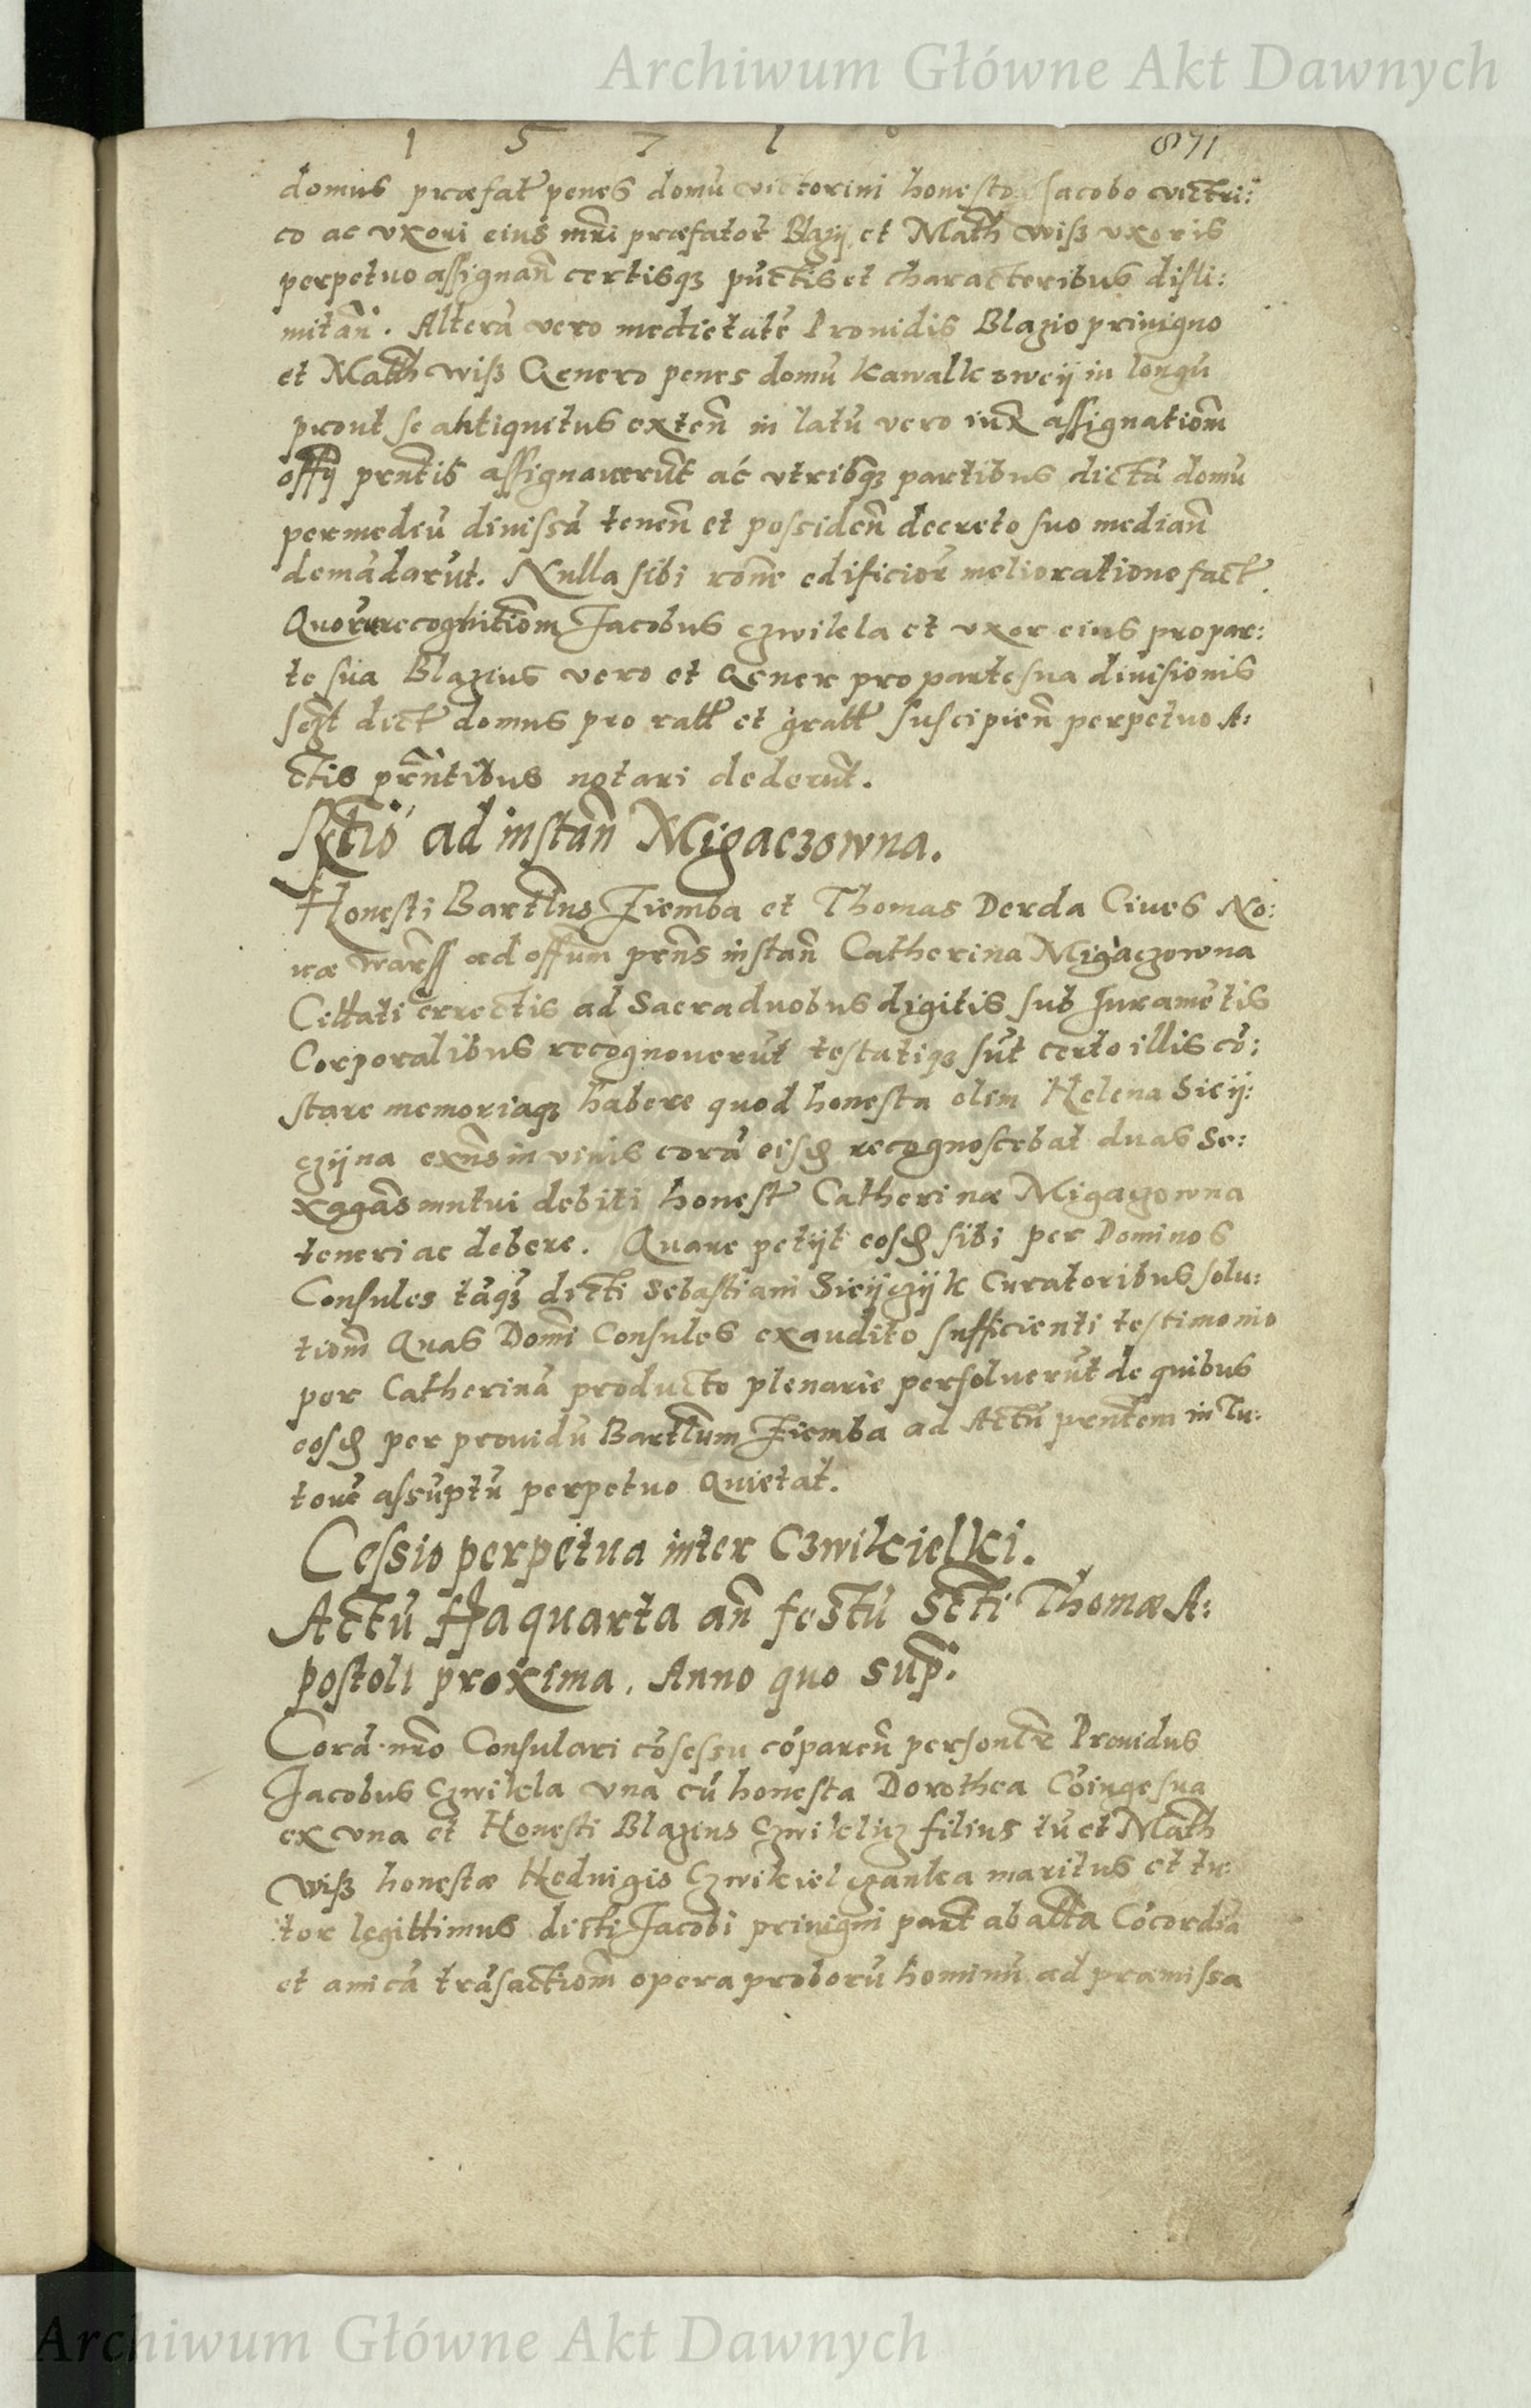 Archiwum Główne Akt Dawnych
1 5 7 1 871
domus præfat penes domũ victorini honesto Jacobo victri:
co ac vxori eius mr̃i præfator Blazij et Math Wiß vxoris
perpetuo assignañ certisqȝ pũctis et characteribus disli:
mitañ. Alterã vero medietatẽ Prouidis Blazio priuigno
et Math wiß Genero penes domũ kawalkowcij in longũ
prout se antiquitus exteñ in latũ vero iux assignatiom̃
offij prñtis assignauerũt ac vtribqȝ partibus dictã domũ
permediũ diuissã teneñ et possideñ decreto suo mediañ
demãdarũt. Nulla sibi rõne edificior melioratione fact
Quorũ recognitiom̃ Jacobus czwikla et vxor eius pro par:
te sua Blazius vero et Gener pro parte sua diuisionis
dict domus pro ratt et gratt suscipieñ perpetuo A:
ctis prñtibus notari dederũt.
Rctio ad instañ Migaczowna.
Honesti Bartlus Ziemba et Thomas Derda Ciues No:
uæ warss ad offum prñs instañ Catherina Migaczowna
Cittati errectis ad Sacra duobus digitis sub Juramẽtis
Corporalibus recognouerũt testatiqȝ sũt certo illis cõ:
stare memoriaqȝ habere quod honesta olim Helena Sicij:
czijna exñs in viuis corã eisd recognoscebat duas Se:
xagãs mutui debiti honest Catherinæ Migaczowna
teneri ac debere. Quare petijt eosd sibi per Dominos
Consules tãqȝ dicti Sebastiani Sicijczijk Curatoribus solu:
tiom̃ Quas Domĩ Consules exaudito sufficienti testimonio
per Catherinã producto plenarie persoluerũt de quibus
eosd per prouidũ Bartlum Ziemba ad Actũ prñtem in Tu:
torẽ assũptũ perpetuo Quietat.
Cessio perpetua inter Czwikielki.
Actũ ffia quarta añ festũ Scti Thomæ A:
postoli proxima. Anno quo sup.
Corã nr̃o Consulari cõsessu cõpareñ personlr Prouidus
Jacobus Czwikla vna cũ honesta Dorothea Cõiuge sua
ex vna et Honesti Blazeus Czwiklicz filius tũ et Math
Wiß honestæ Heduigis Czwikielczanka maritus et tu
tor legittimus dicti Jacobi priuigni part ab altta Cõcordiã
et amicã trãsactiom̃ opera proborũ hominũ ad præmissa
Archiwum Główne Akt Dawnych